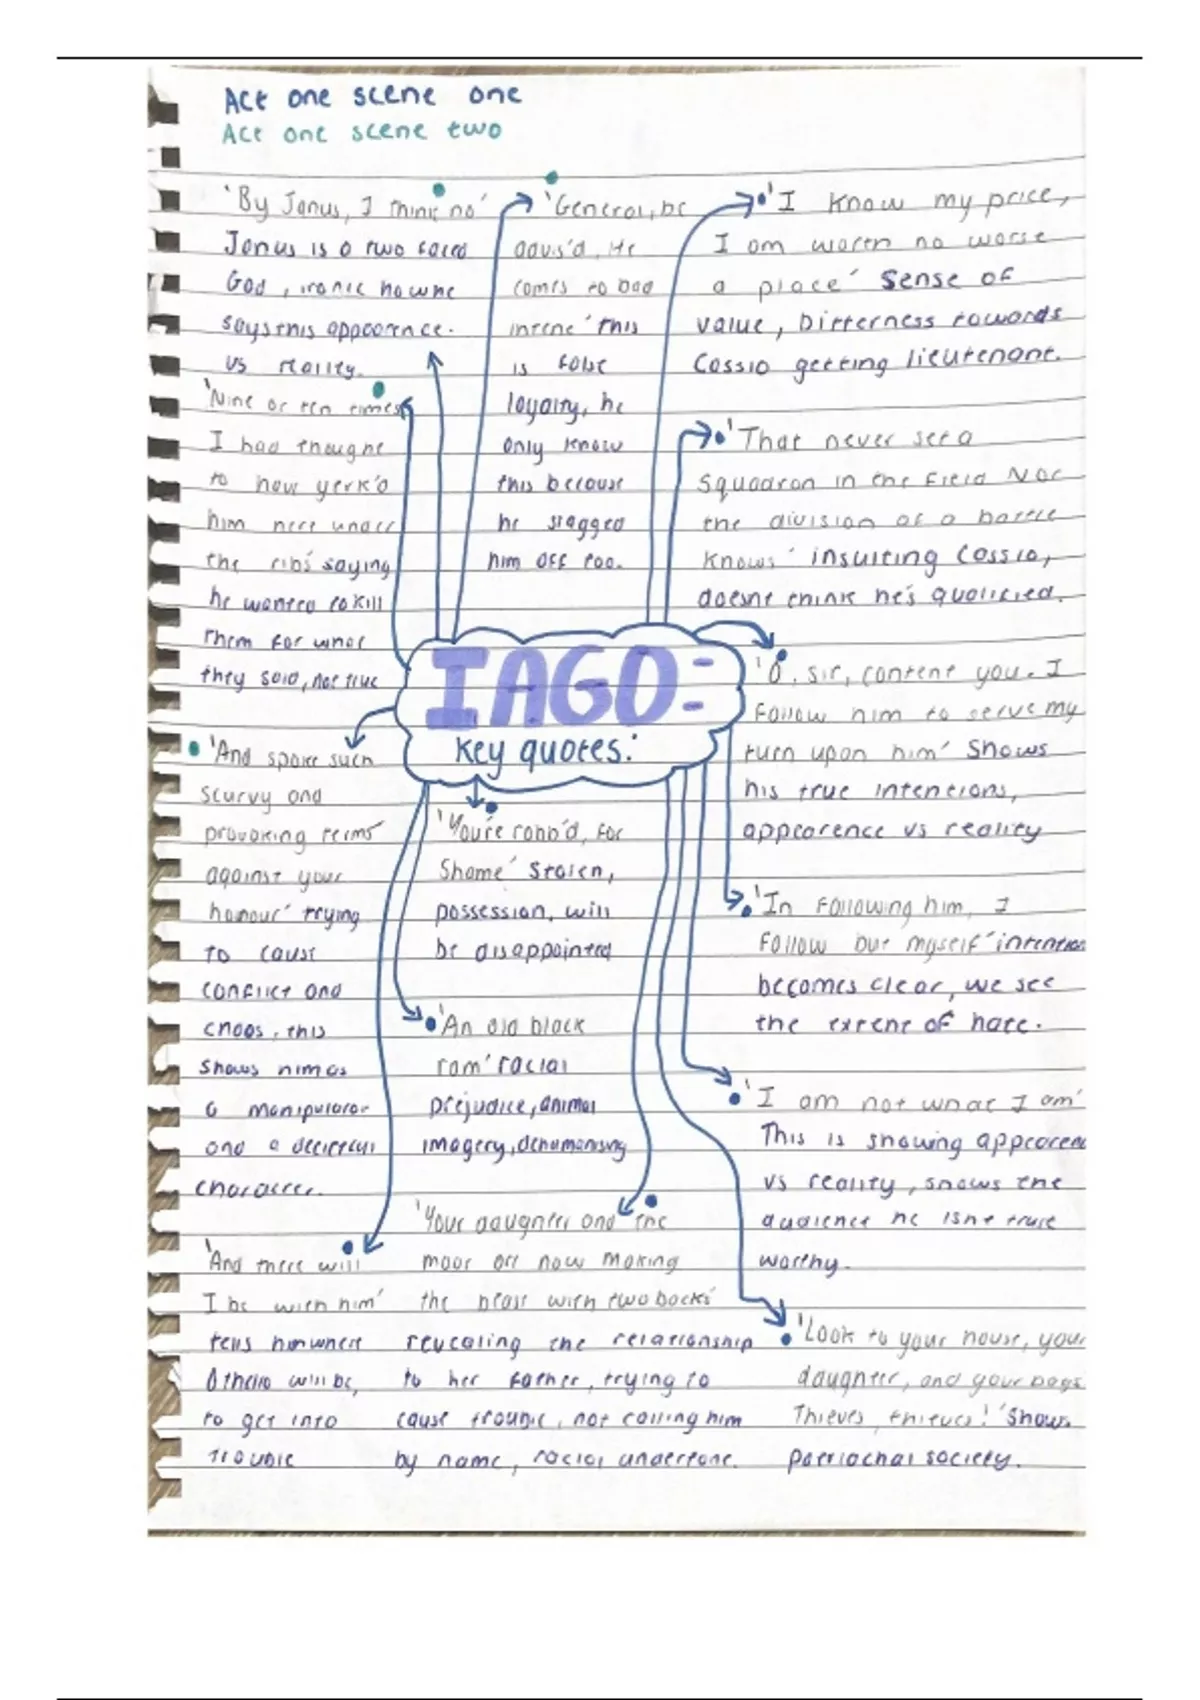 Act one scene one
Act one scene two
'By Janus, I think no'
Janus is a two faced
God, ironic how he
says this appearence.
vs reality.
'Nine or ten times
I had thought
to have yerk'd
him here under
the ribs' saying
he wanted to kill
them for what
they said, not true
'And spoke such
scurvy and
provoking terms
against your
honour' trying
to cause
conflict and
chaos, this
shows him as
a manipulator
and a deceitful
character.
'And there will
I be with him'
tells him where
Othello will be,
to get into
trouble
'General, be
advis'd, He
comes to bad
intent' this
is false
loyalty, he
only know
this because
he slagged
him off too.
IAGO:
key quotes:
'You're robb'd, for
Shame' Stolen,
possession, will
be disappointed
'An old black
ram' racial
prejudice, animal
imagery, dehumanising
'Your daughter and the
moor are now making
the beast with two backs'
revealing the relationship
to her father, trying to
cause trouble, not calling him
by name, racial undertone.
'I know my price,
I am worth no worse
a place' Sense of
value, Bitterness towards
Cassio getting lieutenant.
'That never set a
Squadron in the field Nor
the division of a battle
knows' insulting Cassio,
doesnt think he's qualified.
'O, sir, content you. I
Follow him to serve my
turn upon him' Shows
his true intentions,
appearence vs reality
'In Following him, I
Follow but myself' intention
becomes clear, we see
the extent of hate.
'I am not what I am'
This is showing appearenc
vs reality, shows the
audience he isnt trust
worthy.
'Look to your house, your
daughter, and your bags
Thieves, thieves!' Shows
patriachal society.